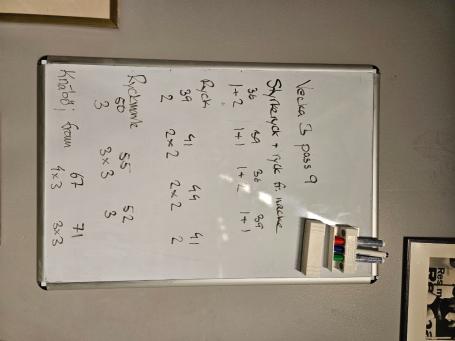 Vecka 3 pass 9
Styrkeryck + ryck fr. knäna
36 39 36 39
1+2 1+1 1+2 1+1
Ryck
39 41 44 41
2 2×2 2×2 2
Ryckmark
50 55 52
3 3×3 3
Knäböj fram 67 71
4×3 3×3